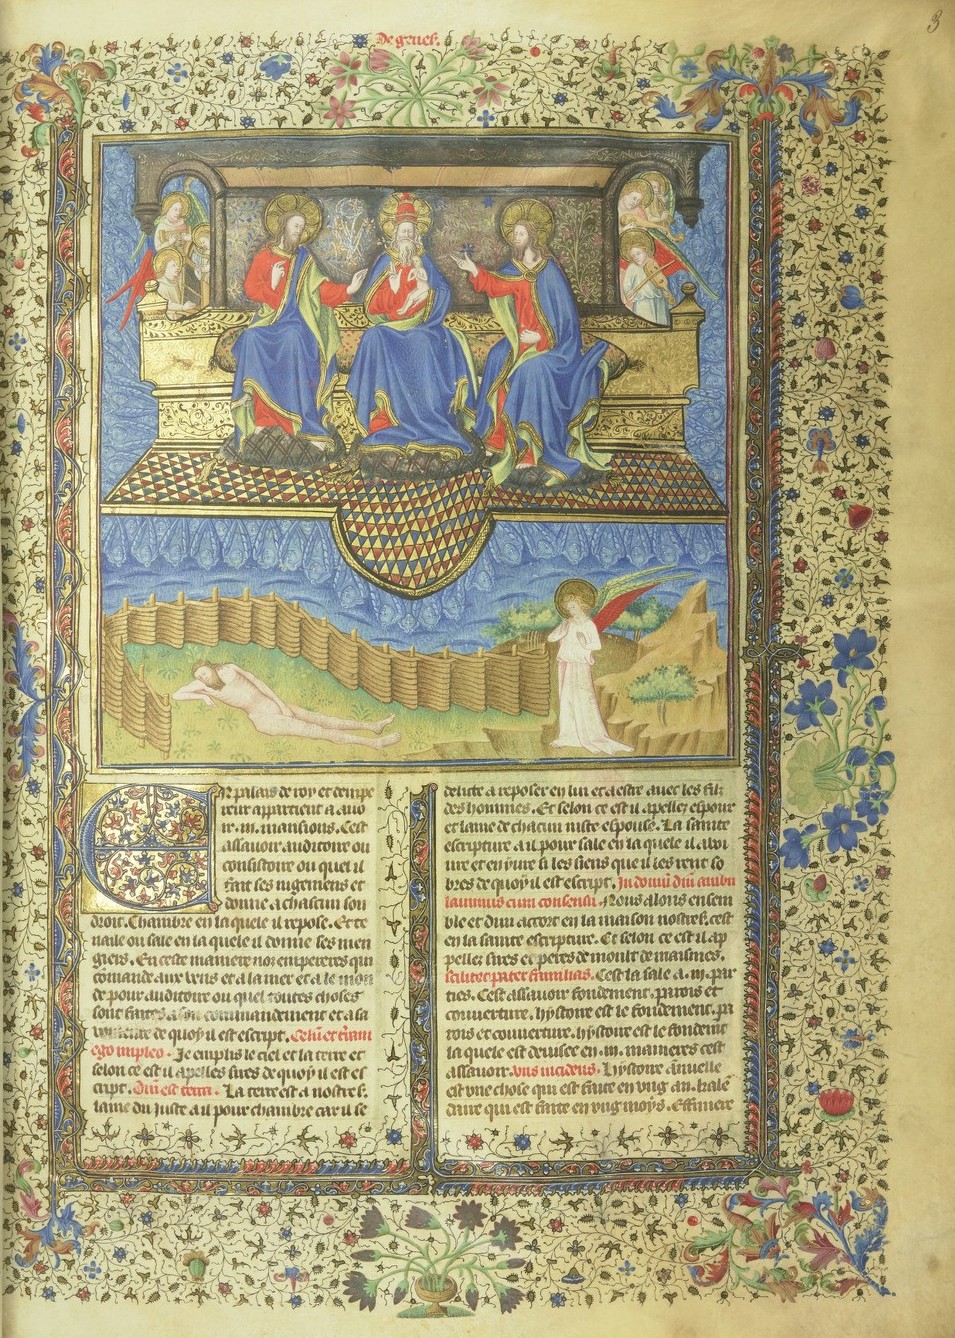 3
De genes.
En palais de roy et dempe
reur appartient a auo
ir .iii. mansions. Cest
assauoir auditoire ou
consistoire ou quel il
fait ses iugemens et
donne a chascun son
droit. Chambre en la quele il repose. Et te
naile ou sale en la quele il donne ses men
giers. En ceste maniere nor empereres qui
comande aux vens et a la mer et a le mon
de pour auditoire ou quel toutes choses
sont faites a son commandement et a sa
voulente de quoy il est escript. Celum et terram
ego impleo. Je emplis le ciel et la terre et
selon ce est il apelles sires de quoy il est es
cript. Domini est terra. La terre est a nostre s.
lame du Juste a il pour chambre car il se
delite a reposer en lui et a estre auec les filz
des hommes. Et selon ce est il apellez espour
et lame de chacun iuste espouse. La sainte
escripture a il pour sale en la quele il aboi
ure et enyure si les siens que il les rent so
bres de quoy il est escript. In domum domini ambu
lauimus cum consensu. Nous alons ensem
ble et dun acort en la maison nostre s. cest
en la sainte escripture. Et selon ce est il ap
pellez sires et peres de moult de maisnies.
scilicet pater familias. Ceste sale a .iii. par
ties. Cest assauoir fondement. parois et
couuerture. hystoire est le fondement. pa
rois et couuerture. hystoire est le fondement
la quele est deuisee en .iii. manieres cest
assauoir. Hystoire annuelle
est vne chose qui est faite en vng an. kale
daire qui est faite en vng moys. Effimere